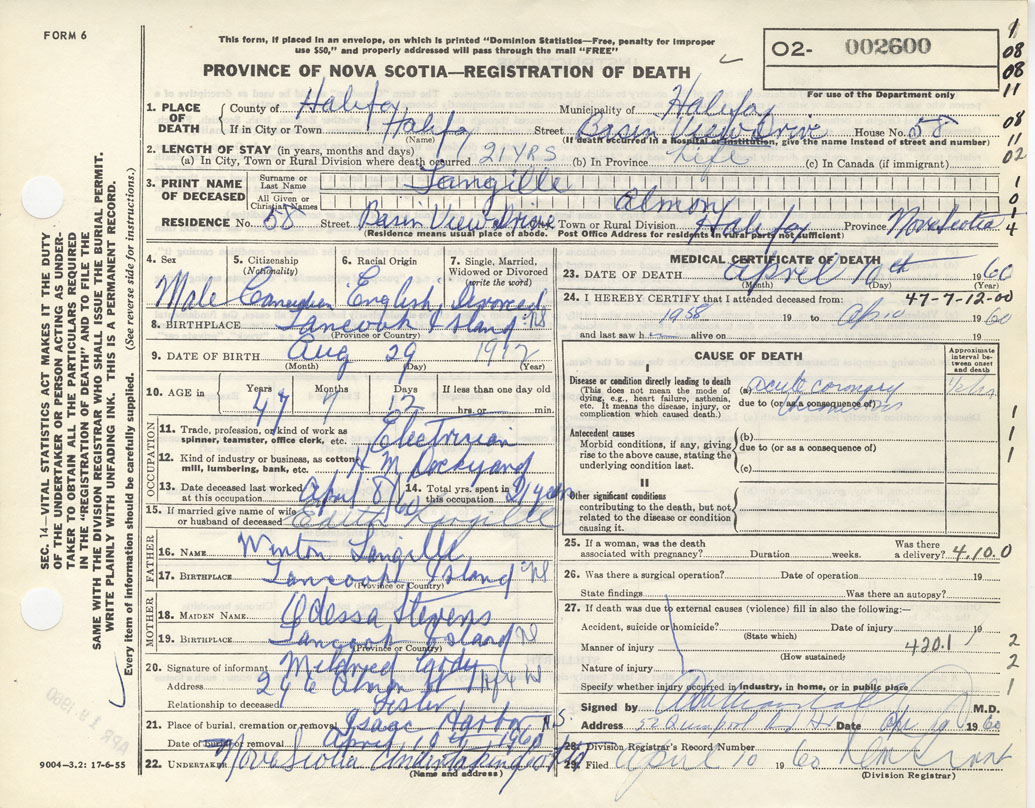 FORM 6
This form, if placed in an envelope, on which is printed "Dominion Statistics—Free, penalty for improper
use $50," and properly addressed will pass through the mail "FREE"
PROVINCE OF NOVA SCOTIA—REGISTRATION OF DEATH
O2- 002600
For use of the Department only
1
08
08
11
08
11
02
1
0
1
4
1. PLACE OF DEATH
County of Halifax Municipality of Halifax
If in City or Town Halifax Street Basin View Drive House No. 58
(Name) (If death occurred in a hospital or institution, give the name instead of street and number)
2. LENGTH OF STAY (in years, months and days)
(a) In City, Town or Rural Division where death occurred 21 YRS (b) In Province Life (c) In Canada (if immigrant)
3. PRINT NAME OF DECEASED
Surname or Last Name Langille
All Given or Christian Names Almon
RESIDENCE No. 58 Street Basin View Drive Town or Rural Division Halifax Province Nova Scotia
(Residence means usual place of abode. Post Office Address for residents in rural parts not sufficient)
4. Sex 5. Citizenship (Nationality) 6. Racial Origin 7. Single, Married, Widowed or Divorced (write the word)
Male Canadian English Divorced
8. BIRTHPLACE Tancook Island NS
(Province or Country)
9. DATE OF BIRTH Aug 29 1912
(Month) (Day) (Year)
10. AGE in Years Months Days If less than one day old
47 7 12 hrs. or min.
OCCUPATION
11. Trade, profession, or kind of work as spinner, teamster, office clerk, etc. Electrician
12. Kind of industry or business, as cotton mill, lumbering, bank, etc. H M Dockyard
13. Date deceased last worked at this occupation April 8/60 14. Total yrs. spent in this occupation 21 years
15. If married give name of wife or husband of deceased Edith Langille
FATHER
16. NAME Winton Langille
17. BIRTHPLACE Tancook Island NS
(Province or Country)
MOTHER
18. MAIDEN NAME Odessa Stevens
19. BIRTHPLACE Tancook Island NS
(Province or Country)
20. Signature of informant Mildred
Address
Relationship to deceased Sister
21. Place of burial, cremation or removal Isaac Harbor N.S.
Date of burial or removal April 1960
22. UNDERTAKER Nova Scotia Undertaking
(Name and address)
9004—3.2: 17-6-55
MEDICAL CERTIFICATE OF DEATH
23. DATE OF DEATH April 10th 1960
(Month) (Day) (Year)
24. I HEREBY CERTIFY that I attended deceased from: 47-7-12-00
1958 19 to 1960
and last saw h alive on 19
CAUSE OF DEATH
Approximate interval between onset and death
I
Disease or condition directly leading to death
(This does not mean the mode of dying, e.g., heart failure, asthenia, etc. It means the disease, injury, or complication which caused death.)
(a) acute coronary
due to (or as a consequence of) occlusion
Antecedent causes
Morbid conditions, if any, giving rise to the above cause, stating the underlying condition last.
(b)
due to (or as a consequence of)
(c)
II
Other significant conditions
contributing to the death, but not related to the disease or condition causing it.
1
1
1
1
25. If a woman, was the death associated with pregnancy? Duration weeks. Was there a delivery? 4.10.0
26. Was there a surgical operation? Date of operation 19
State findings Was there an autopsy?
27. If death was due to external causes (violence) fill in also the following:—
Accident, suicide or homicide? Date of injury 19
(State which)
Manner of injury 420.1 2
(How sustained)
Nature of injury 2
Specify whether injury occurred in industry, in home, or in public place 1
Signed by M.D.
Address Date 1960
28. Division Registrar's Record Number
29. Filed April 10 1960
(Division Registrar)
SEC. 14—VITAL STATISTICS ACT MAKES IT THE DUTY
OF THE UNDERTAKER OR PERSON ACTING AS UNDER-
TAKER TO OBTAIN ALL THE PARTICULARS REQUIRED
IN THE "REGISTRATION OF DEATH" AND TO FILE THE
SAME WITH THE DIVISION REGISTRAR WHO SHALL ISSUE THE BURIAL PERMIT.
WRITE PLAINLY WITH UNFADING INK. THIS IS A PERMANENT RECORD.
Every item of information should be carefully supplied. (See reverse side for instructions.)
APR 19 1960